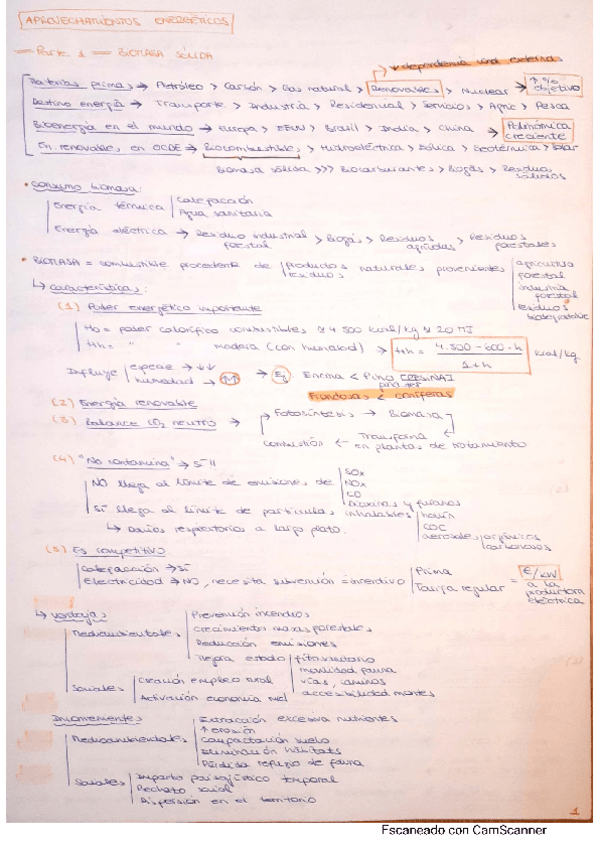 APROVECHAMIENTOS ENERGÉTICOS
Parte 1 BIOMASA SÓLIDA
↓ dependencia und externas
Materias primas → Petróleo > Carbón > Gas natural > Renovables > Nuclear → ↑ % objetivo
Destino energía → Transporte > Industria > Residencial > Servicios > Agric > Pesca
Bioenergía en el mundo → Europa > EEUU > Brasil > India > China → Polinómica creciente
En. renovables en OCDE → Biocombustibles > Hidroeléctrica > Eólica > Geotérmica > Solar
Biomasa sólida >>> Biocarburantes > Biogás > Residuos sólidos
• Consumo biomasa:
Energía térmica | Calefacción
Agua sanitaria
Energía eléctrica → Residuo industrial forestal > Biogás > Residuos agrícolas > Residuos forestales
• BIOMASA = combustible procedente de | productos naturales provenientes | agricultura
residuos
forestal
industria forestal
residuos biodegradable
↳ Características:
(1) Poder energético importante
H0 = poder calorífico combustibles ≈ 4 500 kcal/kg ≈ 20 MJ
Hh = " " madera (con humedad) → Hh = 4.500 - 600·h / 1+h kcal/kg
Influye | especie → ↓↓
humedad → → Ej Encina < Pino
Frondosas < coníferas
(2) Energía renovable
(3) Balance CO2 neutro → Fotosíntesis → Biomasa
Combustión ← Transforma en plantas de tratamiento
(4) "No contamina" → SÍ !!
NO llega al límite de emisiones de | SOx
NOx
CO
Dioxinas y furanos
SÍ llega al límite de partículas inhalables | hollín
COC
aerosoles orgánicos carbonosos
↳ Daños respiratorios a largo plazo.
(5) Es competitivo
Calefacción → SÍ
Electricidad → NO, necesita subvención = incentivo | Prima
Tarifa regular = €/kW a la productora eléctrica
↳ Ventajas
Medioambientales | Prevención incendios
Crecimientos masas forestales
Reducción emisiones
Mejora estado | fitosanitario
movilidad fauna
vías, caminos
accesibilidad montes
Sociales | Creación empleo rural
Activación economía rural
Inconvenientes
Medioambientales | Extracción excesiva nutrientes
↑ erosión
Compactación suelo
Eliminación hábitats
Pérdida refugio de fauna
Sociales | Impacto paisajístico temporal
Rechazo social
Dispersión en el territorio
1
Escaneado con CamScanner